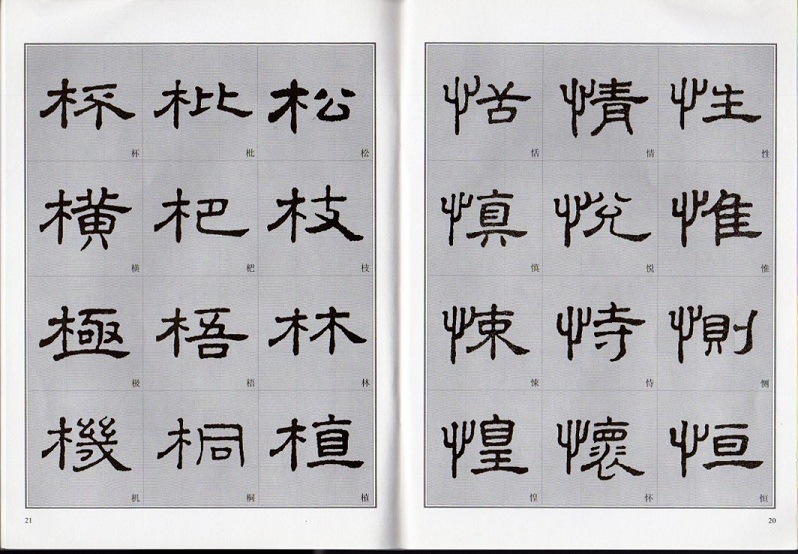 性惟惻恒
性惟恻恒
情悅恃懷
情悦恃怀
恬慎悚惶
恬慎悚惶
20
松枝林植
松枝林植
枇杷梧桐
枇杷梧桐
杯橫極機
杯横极机
21